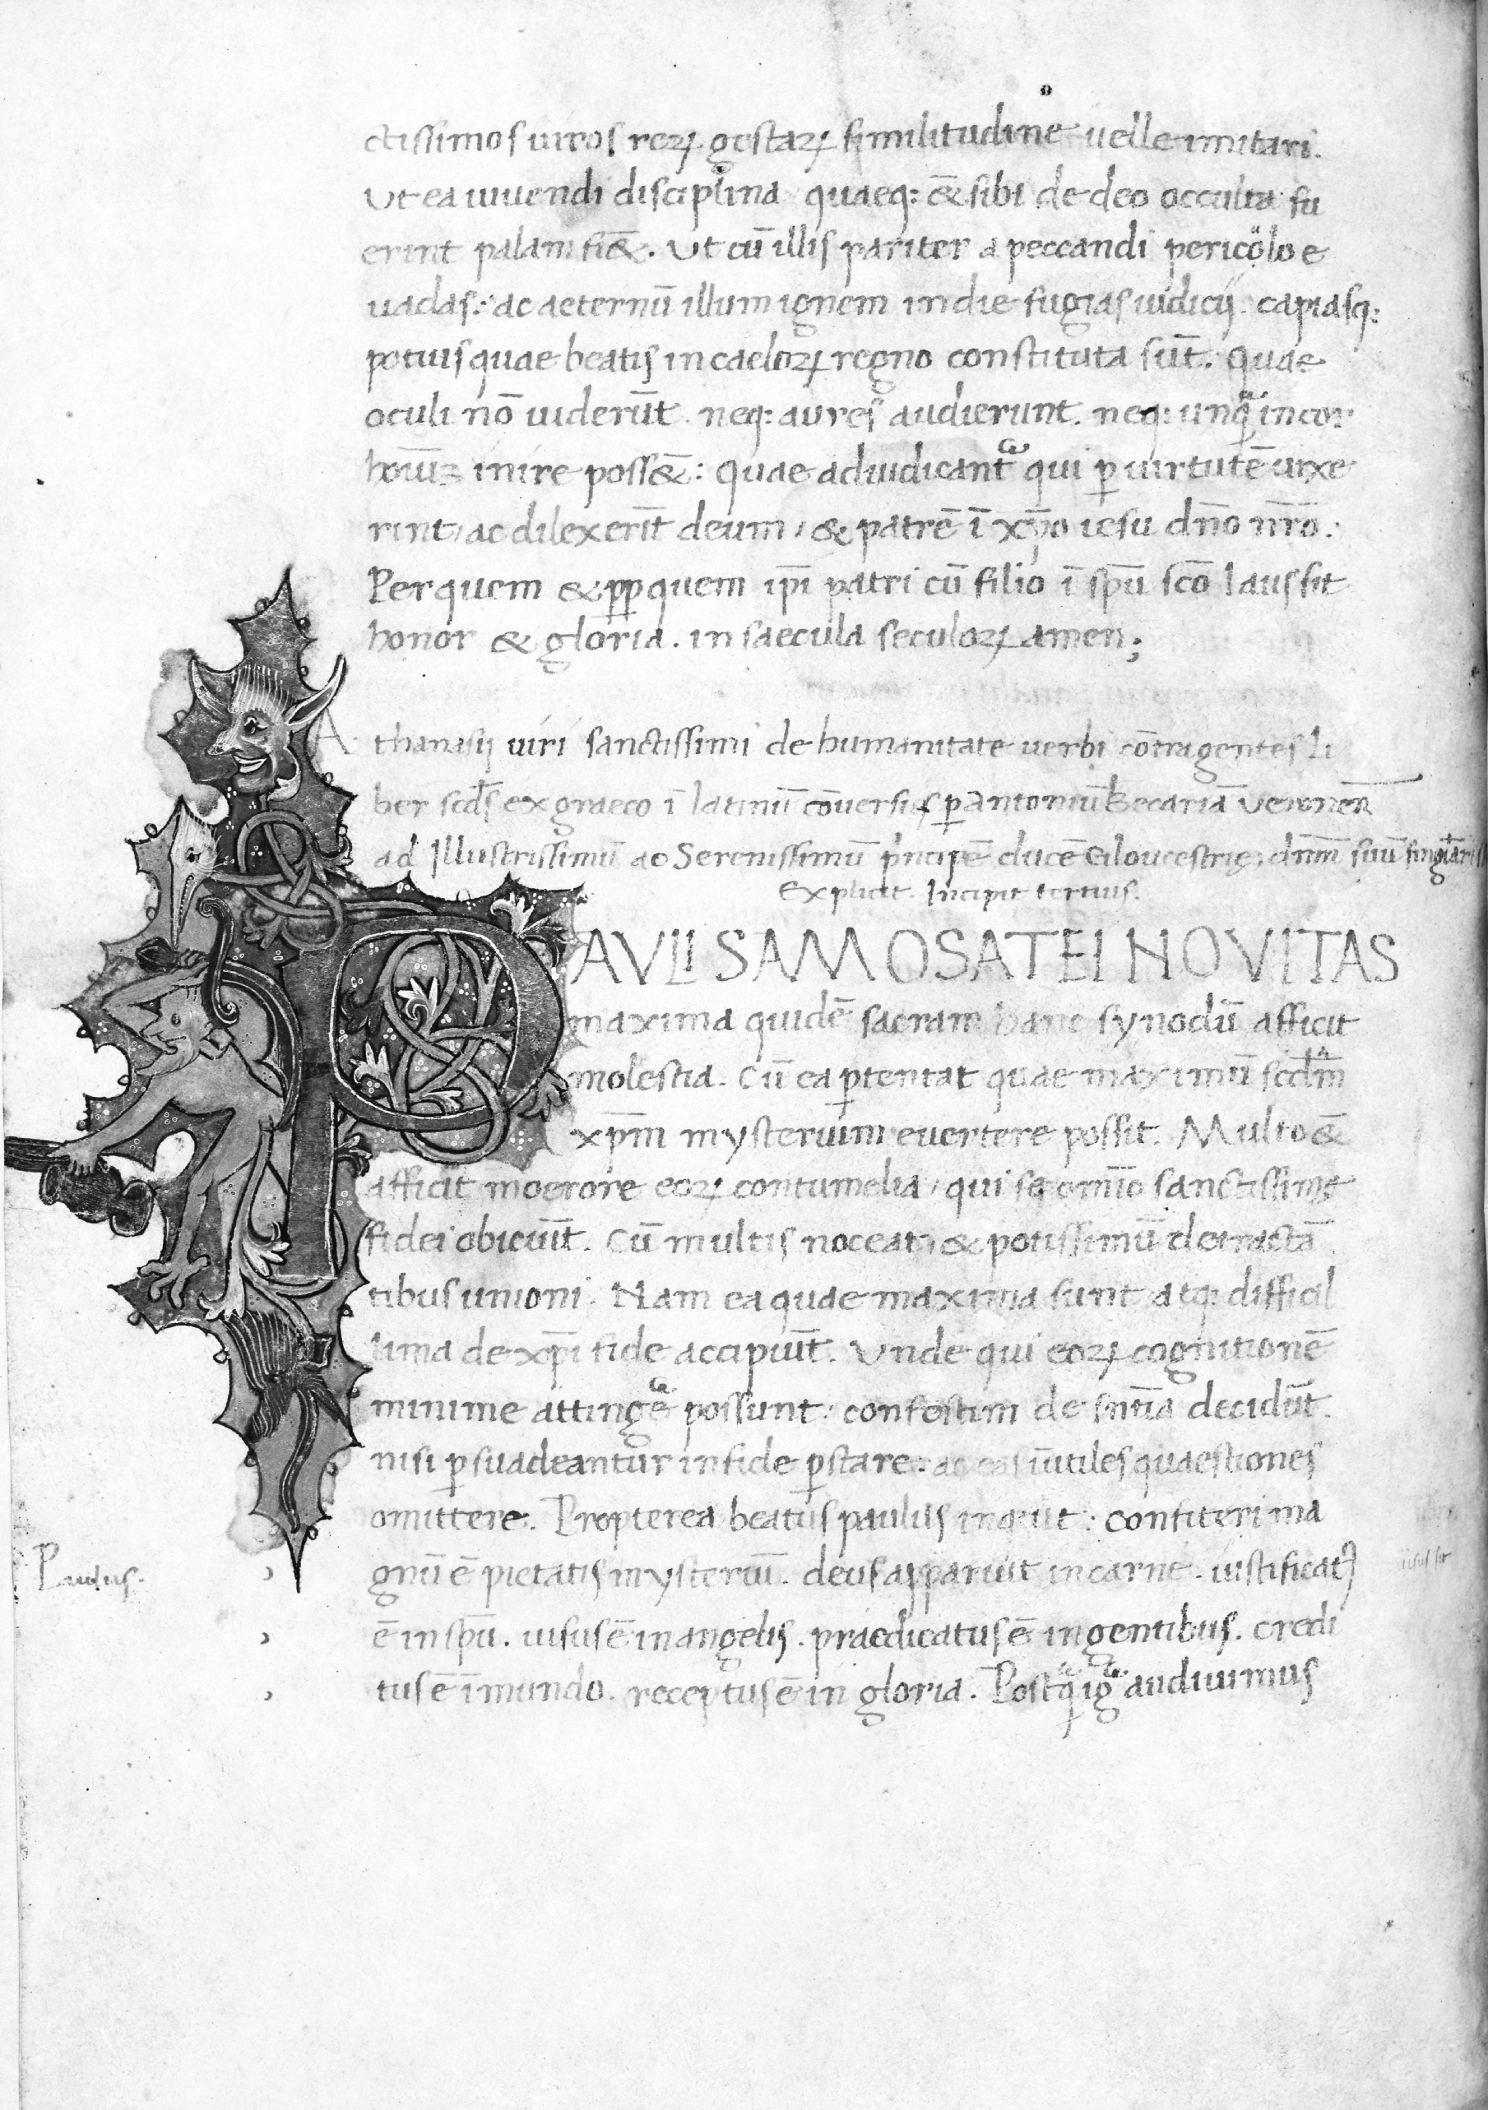 ctissimos uiros reꝝ gestaꝝ similitudine uelle imitari.
Ut ea uiuendi disciplina quaeq: & sibi de deo occulta fu
erint palam fi&. Ut cū illis pariter a peccandi pericolo e
uadas: ac aeternū illum ignem in die fugias iudicij. capiasq:
potius quae beatis in caeloꝝ regno constituta sūt. Quae
oculi nō uiderūt. neq: aures audierunt. neq: unq̃ in cor
hoīuꝫ inire poss&: Quae adiudicant̃ qui ꝑ uirtutē uixe
rint, ac dilexerīt deum, & patrē ī xp̄o iesu dn̄o nr̄o.
Per quem & ꝓp quem ip̄i patri cū filio ī sp̄u scō laus sit
honor & gloria. in saecula seculoꝝ amen;
Athanasij uiri sanctissimi de humanitate uerbi cōtra gentes li
ber scds̄ ex graeco ī latinū cōuersus ꝑ Antoniū Becariā Veronen̄
ad Illustrissimū ac Serenissimū prīncipē ducē Gloucestrię dn̄m suū
Explicit. Incipit tertius.
PAVLI SAMOSATEI NOVITAS
maxima quidē sacram hanc synodū afficit
molestia. Cū ea ꝑtentat quae maximū scdm̄
xp̄m mysterium euertere possit. Multo &
afficit moerore eoꝝ contumelia, qui se om̄īo sanctissimę
fidei obiciūt. Cū multis noceat, & potissimū detractā
tibus unioni. Nam ea quae maxima sunt atq: difficil
lima de xp̄i fide accipiūt. Vnde qui eoꝝ cognitionē
minime attingẽ possunt: confestim de sn̄tia decidūt.
nisi ꝑsuadeantur in fide ꝑstare: ac eas iūtiles quaestiones
omittere. Propterea beatus paulus inquit: confiteri ma
Paulus.
gnū ē pietatis mysteriū. deus apparuit in carne. iustificatꝰ
ē in sp̄u. uisus ē in angelis. praedicatus ē in gentibus. credi
tus ē ī mundo. receptus ē in gloria. Postq̃ ig̃ audiuimus